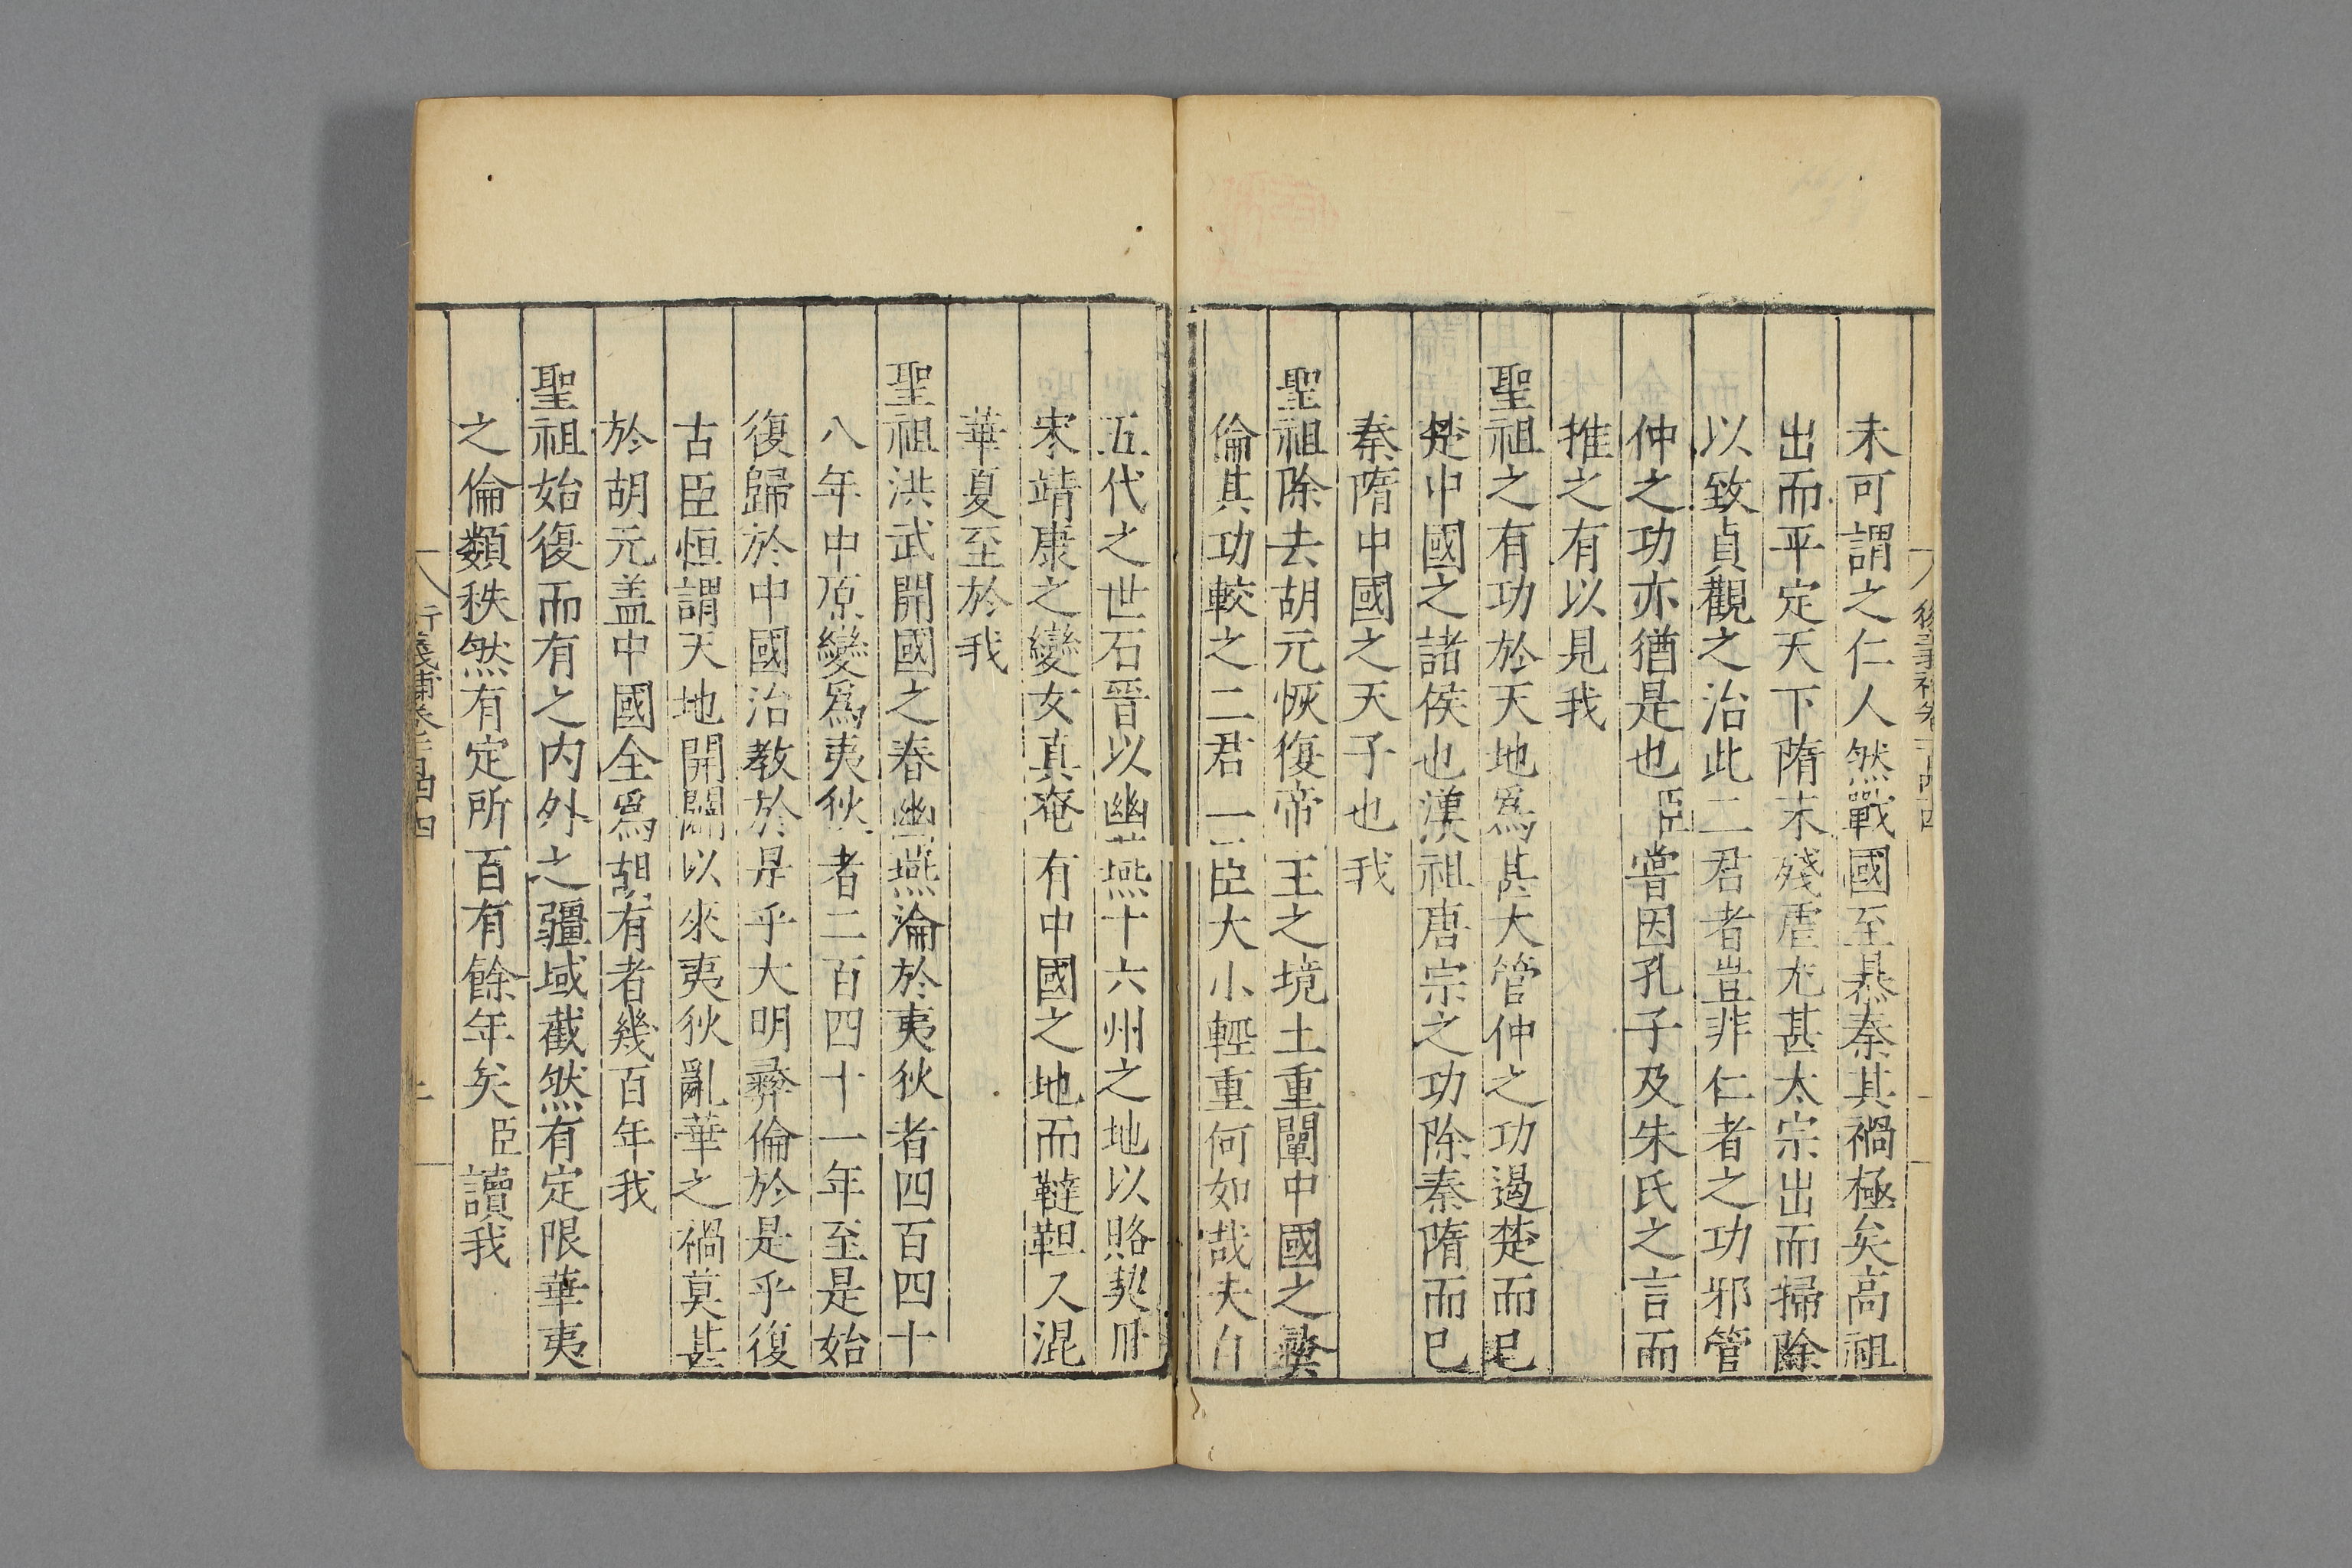 未可謂之仁人然戰國至暴秦其禍極矣高祖
出而平定天下隋末殘虐尤甚太宗出而掃除
以致貞觀之治此二君者豈非仁者之功邪管
仲之功亦猶是也臣嘗因孔子及朱氏之言而
推之有以見我
聖祖之有功於天地爲甚大管仲之功遏楚而已
楚中國之諸侯也漢祖唐宗之功除秦隋而已
秦隋中國之天子也我
聖祖除去胡元恢復帝王之境土重闡中國之彜
倫其功較之二君一臣大小輕重何如哉夫自
五代之世石晉以幽燕十六州之地以賂契丹
宋靖康之變女真奄有中國之地而韃靼又混
華夏至於我
聖祖洪武開國之春幽燕淪於夷狄者四百四十
八年中原變爲夷狄者二百四十一年至是始
復歸於中國治教於是乎大明彜倫於是乎復
古臣恒謂天地開闢以來夷狄亂華之禍莫甚
於胡元盖中國全爲胡有者幾百年我
聖祖始復而有之内外之疆域截然有定限華夷
之倫類秩然有定所百有餘年矣臣讀我
衍義補卷一百四四